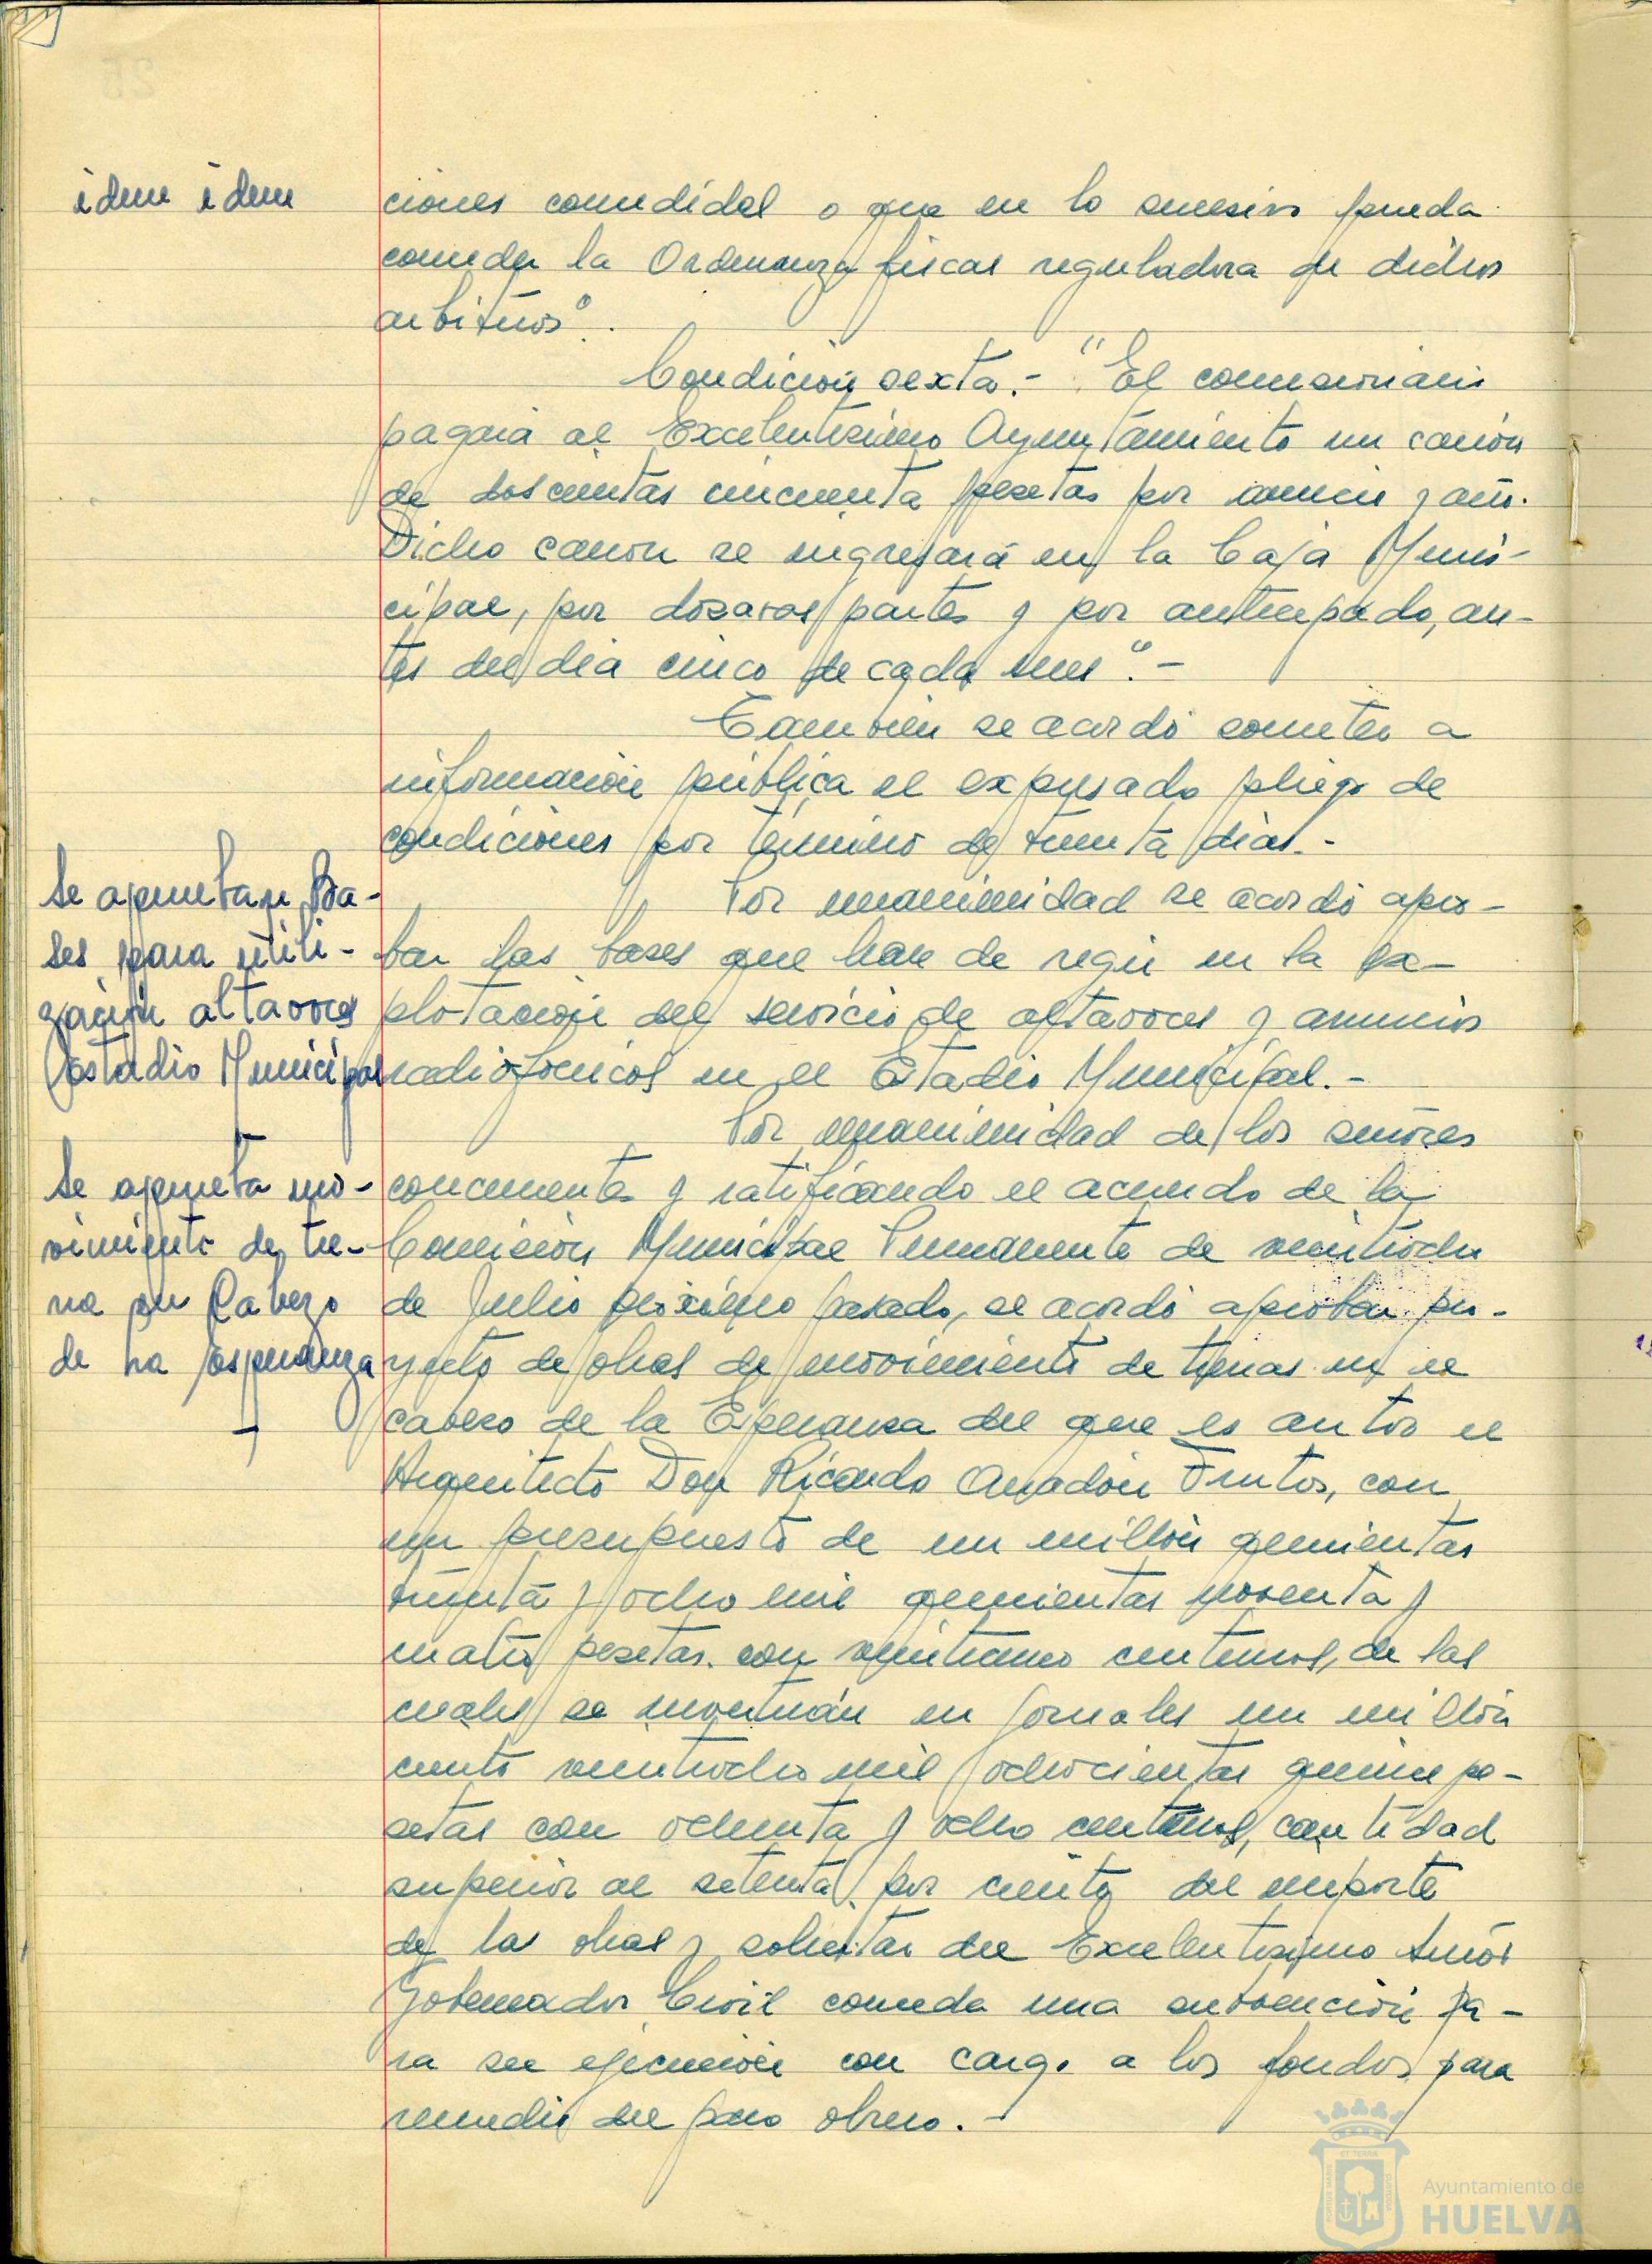 idem idem
ciones concedidas o que en lo sucesivo pueda
conceder la Ordenanza fiscal reguladora de dichos
arbitrios".
Condición sexta.- "El concesionario
pagará al Excelentísimo Ayuntamiento un canon
de doscientas cincuenta pesetas por anuncio y año.
Dicho canon se ingresará en la Caja Muni-
cipal, por dozavas partes y por anticipado, an-
tes del dia cinco de cada mes".-
También se acordó someter a
información pública el expresado pliego de
condiciones por término de treinta días.-
Se aprueban Ba-
ses para utili-
zación altavoces
Estadio Municipal
Por unanimidad se acordó apro-
bar las bases que han de regir en la ex-
plotación del servicio de altavoces y anuncios
radiofonicos en el Estadio Municipal.-
Se aprueba mo-
vimiento de tie-
rra en Cabezo
de La Esperanza
Por unanimidad de los señores
concurrentes y ratificando el acuerdo de la
Comisión Municipal Permanente de veintiocho
de Julio próximo pasado, se acordó aprobar pro-
yecto de obras de movimiento de tierras en el
cabezo de la Esperanza del que es autor el
Arquitecto Don Ricardo Anadón Frutos, con
un presupuesto de un millón quinientas
treinta y ocho mil quinientas noventa y
cuatro pesetas con veintiun centimos, de las
cuales se invertirán en jornales un millón
ciento veintiocho mil ochocientas quince pe-
setas con ochenta y ocho centimos, cantidad
superior al setenta por ciento del importe
de las obras y solicitar del Excelentisimo Señor
Gobernador Civil conceda una subvención pa-
ra su ejecución con cargo a los fondos para
remedio del paro obrero.-
Ayuntamiento de
HUELVA